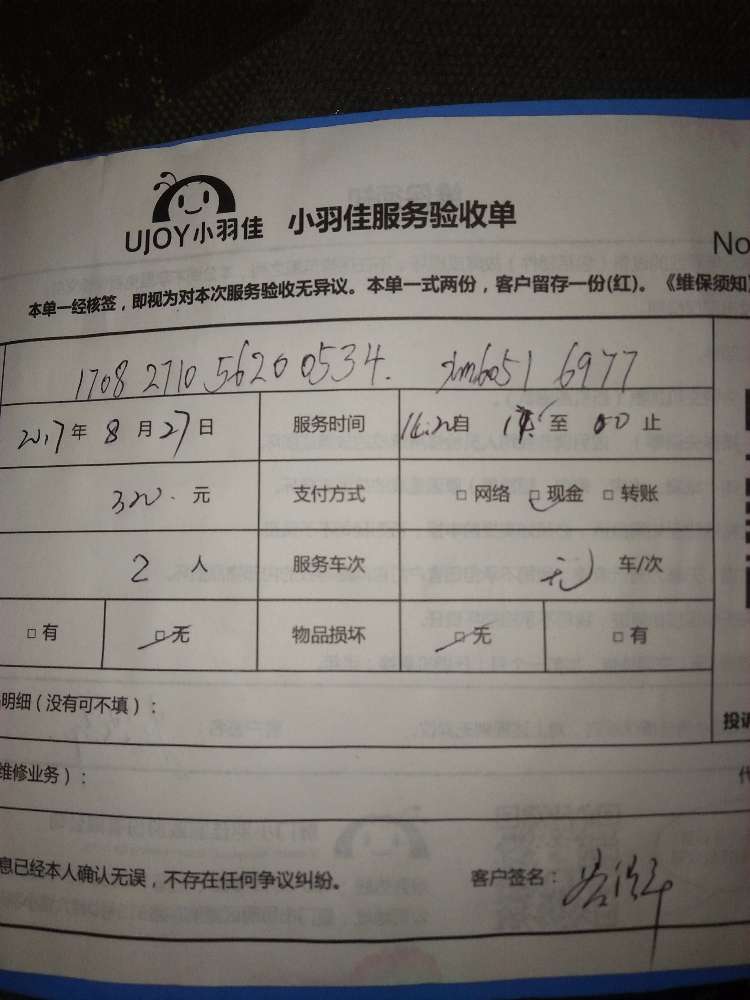 UJOY小羽佳 小羽佳服务验收单
No
本单一经核签，即视为对本次服务验收无异议。本单一式两份，客户留存一份(红)。《维保须知》
1708 2710 5620 0534. xm6051 6977
2017年 8月 27日 服务时间 自 至 00 止
320.元 支付方式 □网络 □现金 □转账
2 人 服务车次 无 车/次
□有 □无 物品损坏 □无 □有
明细（没有可不填）：
投诉
维修业务）：
息已经本人确认无误，不存在任何争议纠纷。 客户签名：